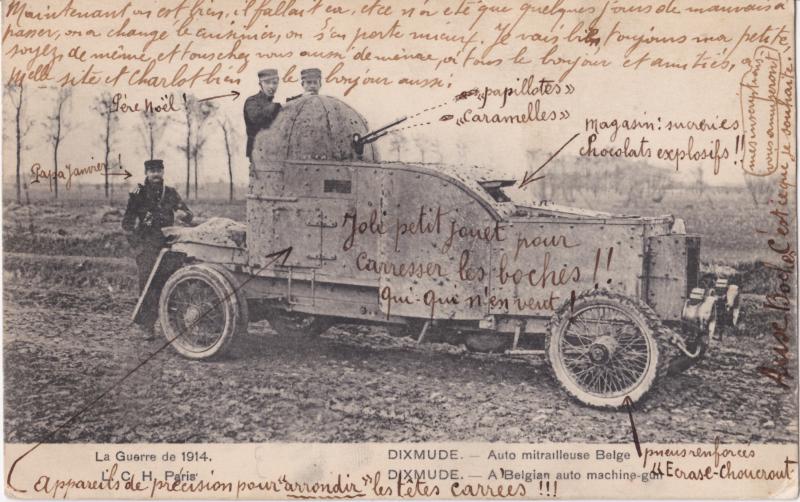 Maintenant on est bien, il fallait ça, et ce n'a été que quelques jours de mauvais à
passer, on a changé le cuisinier, on s'en porte mieux. Je vais bien, toujours ma petite
soyez de même, et tous chez vous aussi de même, à tous le bonjour et amitiés, à
Melle site et Charlot bien le bonjour aussi.
mes inscriptions
vous amuseront
c'est ce que je souhaite.
Père Noël !
"papillotes"
"caramelles"
magasin : sucreries
chocolats explosifs !!
Papa Janvier !
Joli petit jouet pour
carresser les boches !!
qui-qui n'en veut !
Aux Boches
La Guerre de 1914.
L. C. H. Paris
DIXMUDE. — Auto mitrailleuse Belge
DIXMUDE. — A Belgian auto machine-gun
pneus renforcés
"Ecrase-Choucrout"
appareils de précision pour "arrondir" les têtes carrées !!!